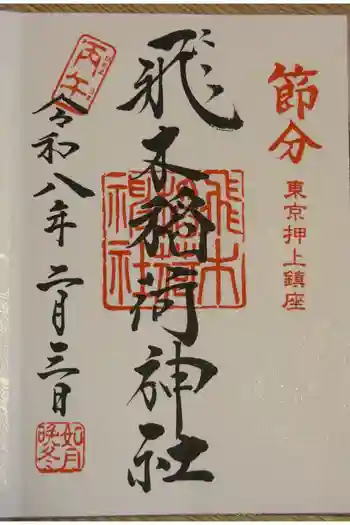 節分
東京押上鎮座
飛木稲荷神社
飛木稲荷神社
丙午
令和八年 二月三日
如月
晩冬